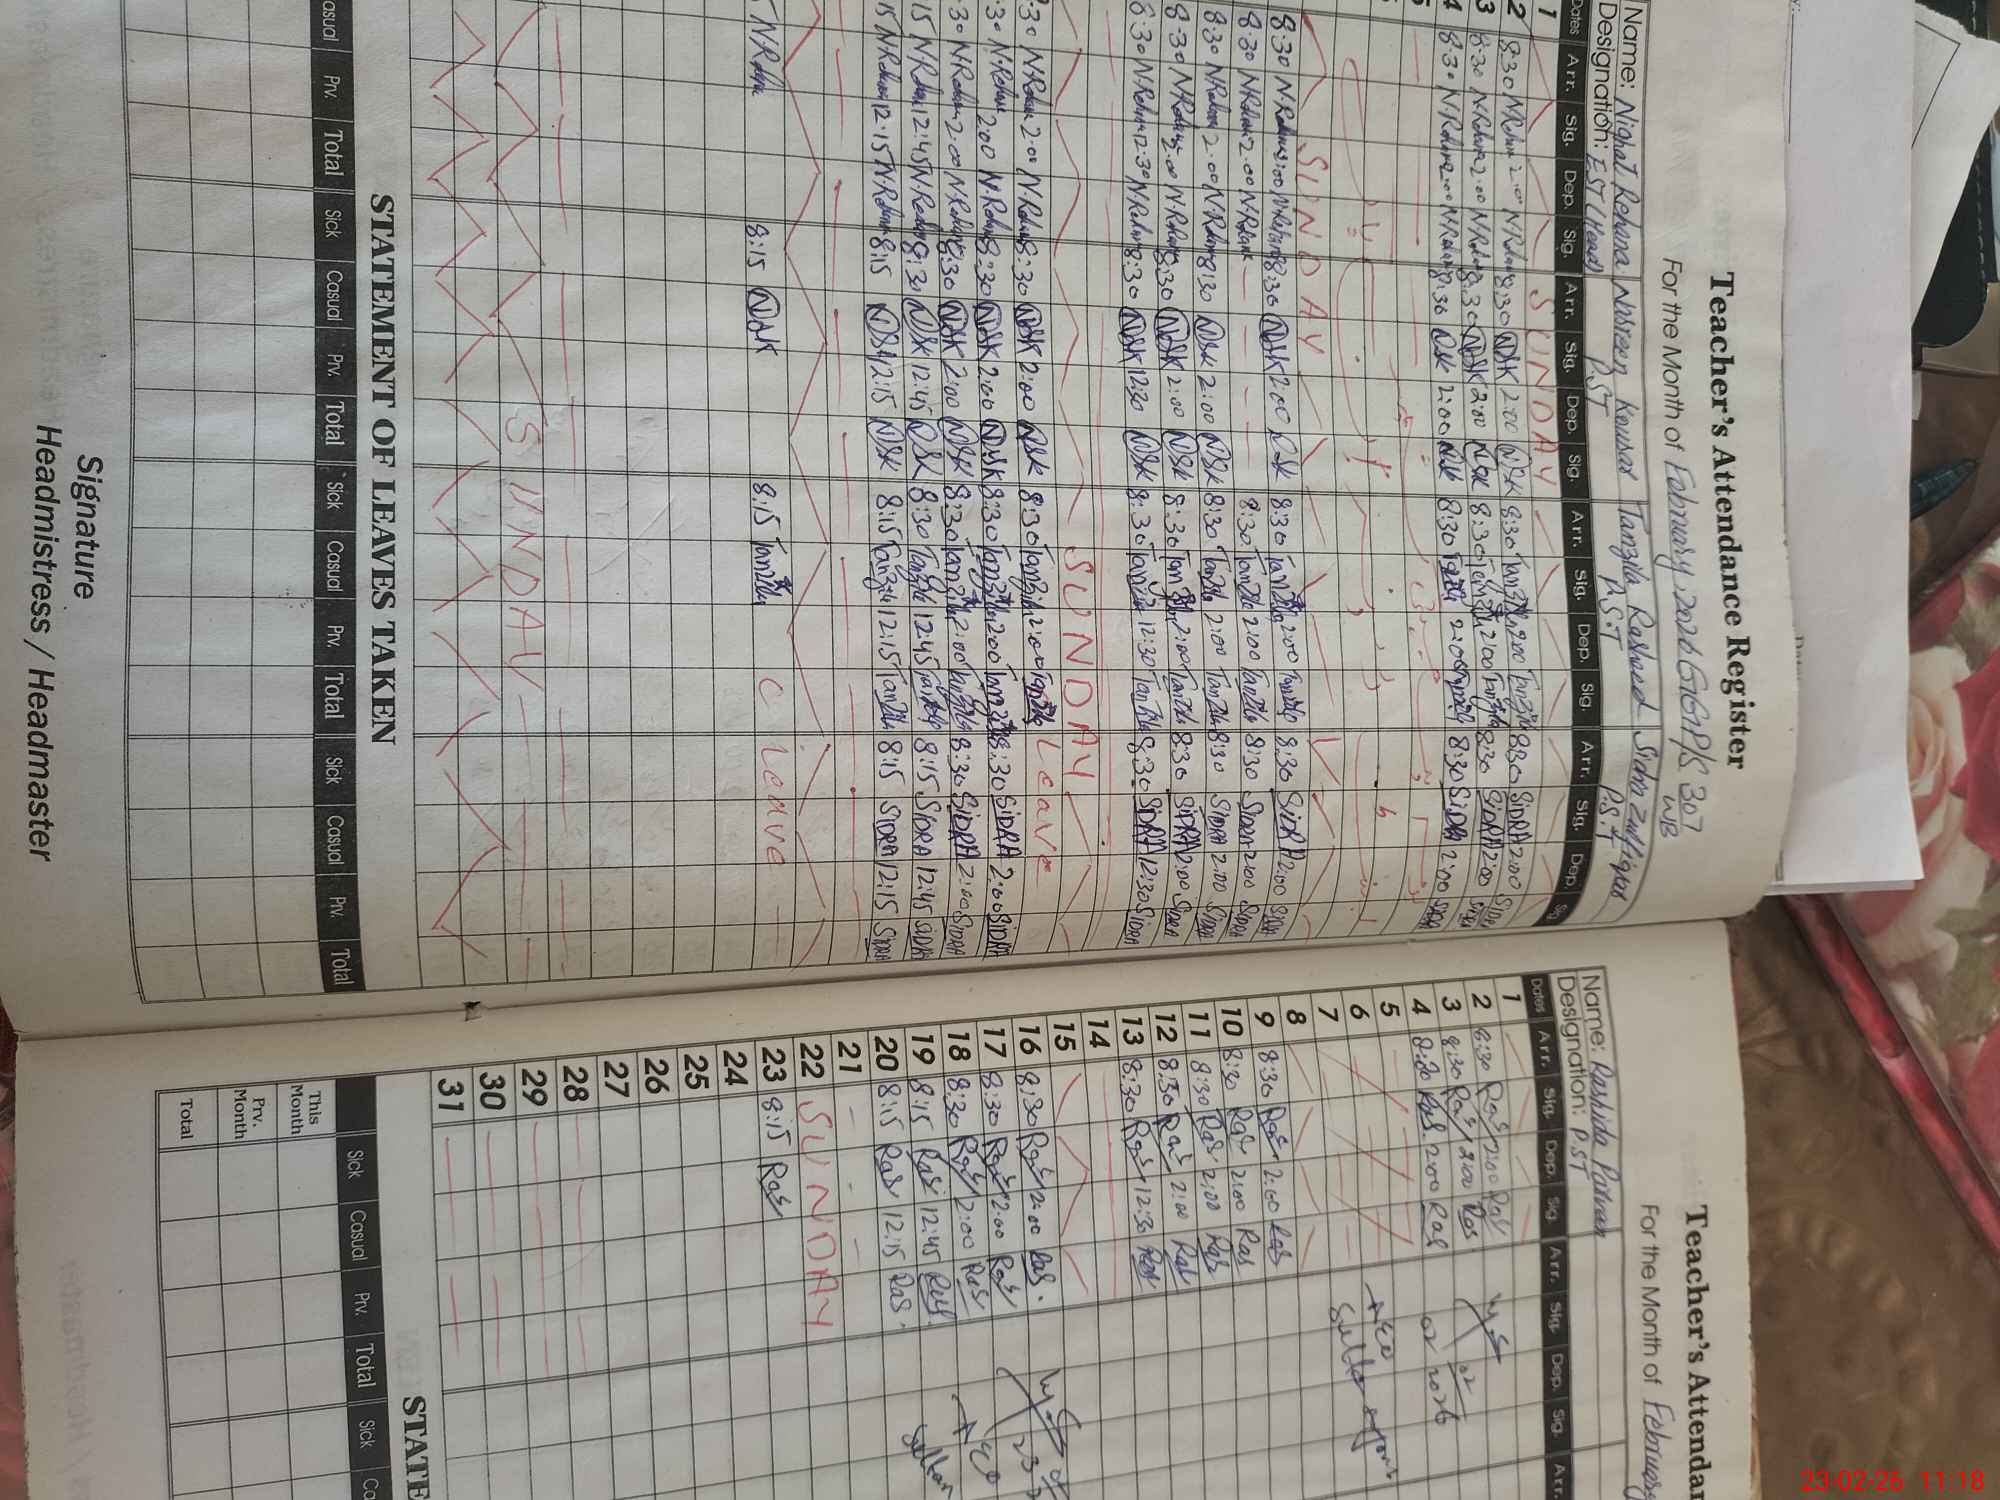 Teacher's Attendance Register
For the Month of February 2026 GGP/S 307
WB
Name: Nighat Rehana Nasreen Kousar Tanzila Rasheed Sidra Zulfiqar
Designation: EST (Head) P.ST P.S.T P.S.T
Dates Arr. Sig. Dep. Sig. Arr. Sig. Dep. Sig. Arr. Sig. Dep. Sig. Arr. Sig. Dep. Sig.
1 SUNDAY
2 8:30 N.Rehana 2:00 N.Rehana 8:30 NSK 2:00 NSK 8:30 Tanzila 2:00 Tanzila 8:30 SIDRA 2:00 SIDRA
3 8:30 N.Rehana 2:00 N.Rehana 8:30 NSK 2:00 NSK 8:30 Tanzila 2:00 Tanzila 8:30 SIDRA 2:00
4 8:30 N.Rehana 2:00 N.Rehana 8:30 NSK 2:00 NSK 8:30 2:00 8:30 SIDRA 2:00 SIDRA
SUNDAY
8:30 N.Rehana 2:00 N.Rehana 8:30 NSK 2:00 NSK 8:30 Tanzila 2:00 Tanzila 8:30 SIDRA 2:00 SIDRA
8:30 N.Rehana 2:00 N.Rehana 8:30 Tanzila 2:00 Tanzila 8:30 SIDRA 2:00 SIDRA
8:30 N.Rehana 2:00 N.Rehana 8:30 NSK 2:00 NSK 8:30 Tanzila 2:00 Tanzila 8:30 SIDRA 2:00 SIDRA
8:30 N.Rehana 2:00 N.Rehana 8:30 NSK 2:00 NSK 8:30 Tanzila 2:00 Tanzila 8:30 SIDRA 2:00 SIDRA
8:30 N.Rehana 12:30 N.Rehana 8:30 NSK 12:30 NSK 8:30 Tanzila 12:30 Tanzila 8:30 SIDRA 12:30 SIDRA
SUNDAY
8:30 N.Rehana 2:00 N.Rehana 8:30 NSK 2:00 NSK 8:30 Tanzila 2:00 Tanzila Leave
:30 N.Rehana 2:00 N.Rehana 8:30 NSK 2:00 NSK 8:30 Tanzila 2:00 Tanzila 8:30 SIDRA 2:00 SIDRA
:30 N.Rehana 2:00 N.Rehana 8:30 NSK 2:00 NSK 8:30 Tanzila 2:00 Tanzila 8:30 SIDRA 2:00 SIDRA
15 N.Rehana 12:45 N.Rehana 8:30 NSK 12:45 NSK 8:30 Tanzila 12:45 Tanzila 8:15 SIDRA 12:45 SIDRA
15 N.Rehana 12:15 N.Rehana 8:15 NSK 12:15 NSK 8:15 Tanzila 12:15 Tanzila 8:15 SIDRA 12:15 SIDRA
15 N.Rehana 8:15 NSK 8:15 Tanzila C Leave
SUNDAY
STATEMENT OF LEAVES TAKEN
Casual Prv. Total Sick Casual Prv. Total Sick Casual Prv. Total Sick Casual Prv. Total
Signature
Headmistress / Headmaster
Teacher's Attendan
For the Month of February
Name: Rashida Parveen
Designation: P.ST
Dates Arr. Sig. Dep. Sig. Arr. Sig. Dep. Sig. Arr.
1
2 8:30 Ras 2:00 Ras
3 8:30 Ras 2:00 Ras
4 8:30 Ras 2:00 Ras
02 2026
5
6
7
8
9 8:30 Ras 2:00 Ras
10 8:30 Ras 2:00 Ras
11 8:30 Ras 2:00 Ras
12 8:30 Ras 2:00 Ras
13 8:30 Ras 12:30 Ras
14
15
16 8:30 Ras 2:00 Ras
17 8:30 Ras 2:00 Ras
18 8:30 Ras 2:00 Ras
19 8:15 Ras 12:45 Ras
20 8:15 Ras 12:15 Ras
21
22 SUNDAY
23 8:15 Ras
24
25
26
27
28
29
30
31
STATE
Sick Casual Prv. Total Sick Ca
This Month
Prv. Month
Total
23-02-26 11:18